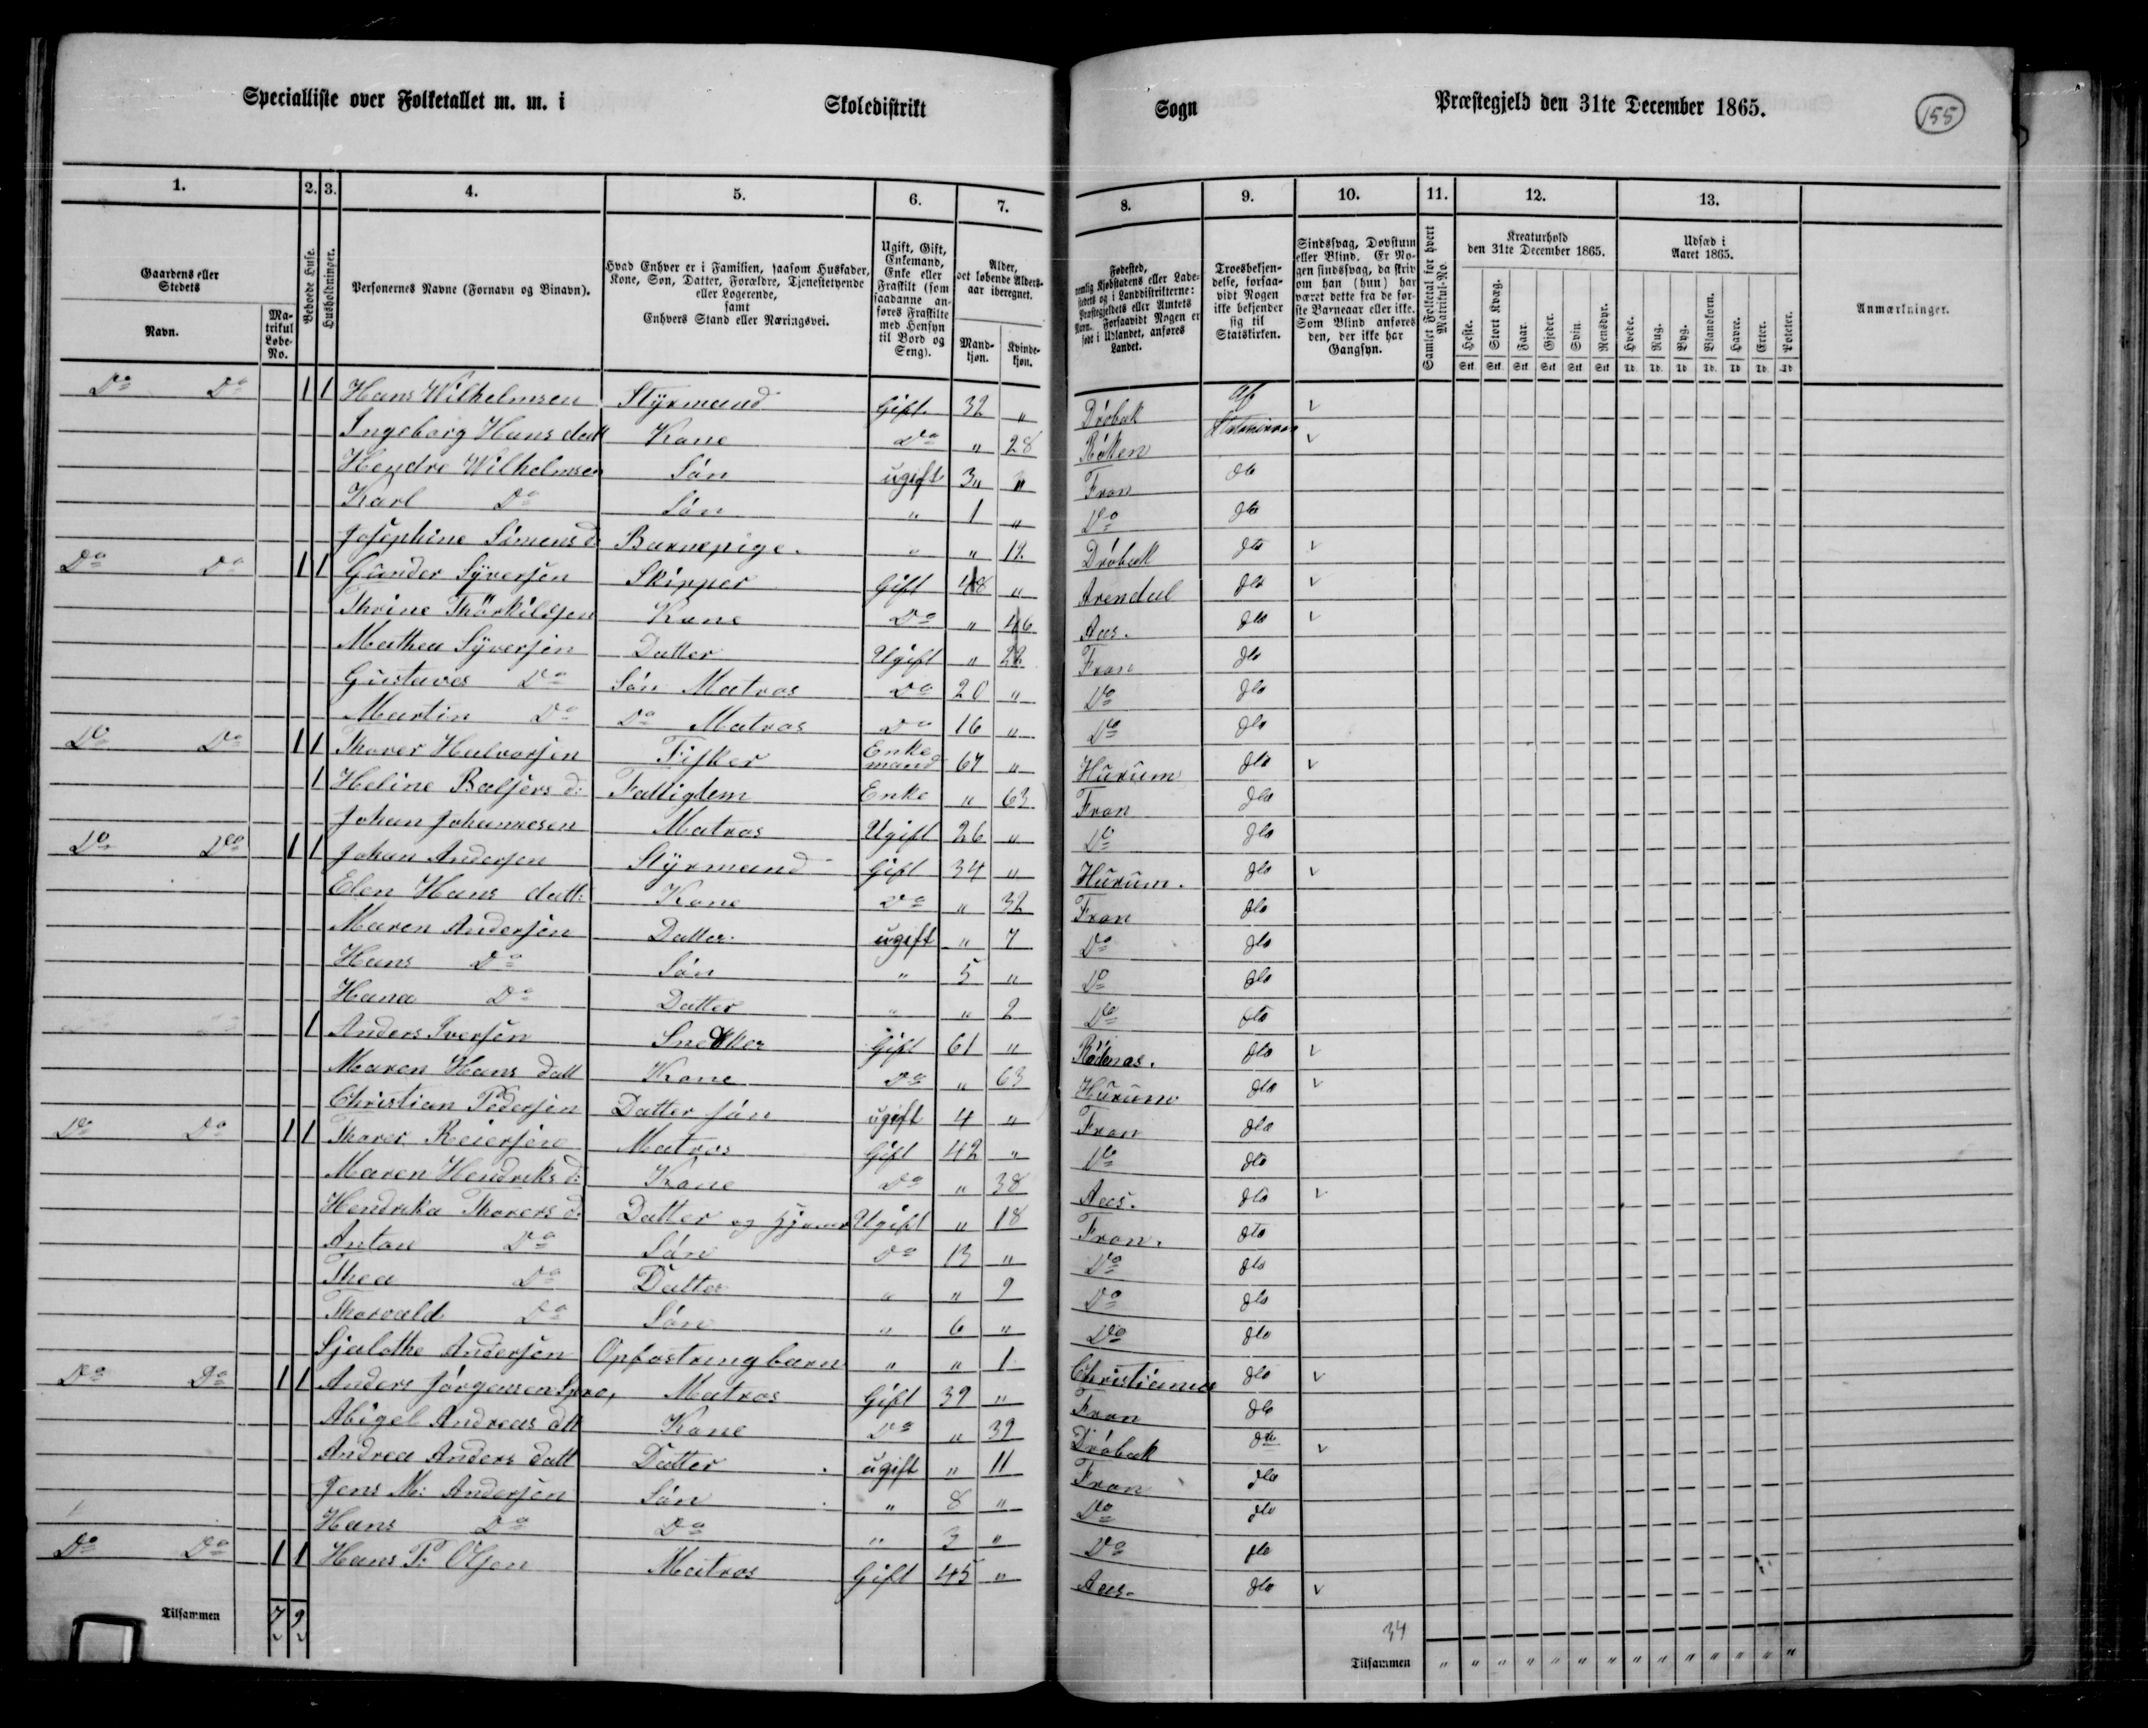 Specialliste over Folketallet m. m. i Skoledistrikt Sogn Præstegjeld den 31te December 1865. 155
1. 2. 3. 4. 5. 6. 7. 8. 9. 10. 11. 12. 13.
Gaardens eller Stedets
Navn.
Matrikul Løbe-No.
Beboede Huse.
Husholdninger.
Personernes Navne (Fornavn og Binavn).
Hvad Enhver er i Familien, saasom Husfader, Kone, Søn, Datter, Forældre, Tjenestetyende eller Logerende, samt Enhvers Stand eller Næringsvei.
Ugift, Gift, Enkemand, Enke eller Fraskilt (som saadanne anføres Fraskilte med Hensyn til Bord og Seng).
Alder, det løbende Alders-aar iberegnet.
Mandkjøn. Kvindekjøn.
Fødested, nemlig Kjøbstadens eller Ladestedets og i Landdistrikterne: Præstegjeldets eller Amtets Navn. Forsaavidt Nogen er født i Udlandet, anføres Landet.
Troesbekjendelse, forsaavidt Nogen ikke bekjender sig til Statskirken.
Sindssvag, Døvstum eller Blind. Er Nogen sindssvag, da skriv om han (hun) har været dette fra de første Barneaar eller ikke. Som Blind anføres den, der ikke har Gangsyn.
Samlet Folketal for hvert Matrikul-No.
Kreaturhold den 31te December 1865.
Heste. Stort Kvæg. Faar. Gjeder. Svin. Rensdyr.
Stk. Stk. Stk. Stk. Stk. Stk.
Udsæd i Aaret 1865.
Hvede. Rug. Byg. Blandkorn. Havre. Erter. Poteter.
Td. Td. Td. Td. Td. Td. Td.
Anmærkninger.
Do Do 1 1 Hans Wilhelmsen Styrmand Gift 32 " Drøbak Af
Ingeborg Hans datt Kone Do " 28 Røken Statskirken
Hendre Wilhelmsen Søn ugift 3 " Fron do
Karl Do Søn " 1 " Do do
Josephine Simensd Barnepige. " " 12 Drøbak do
Do Do 1 1 Gunder Syversen Skipper Gift 48 " Arendal do
Thrine Thorkildsen Kone Do " 46 Aas. do
Mathea Syversen Datter Ugift " 22 Fron do
Gustaves Do Søn Matros Do 20 " Do do
Martin Do Do Matros Do 16 " Do do
Do Do 1 1 Thorer Halvorsen Fisker Enkemand 67 " Hurum do
1 Heline Baltsers d: Fattiglem Enke " 63 Fron do
Johan Johannesen Matros Ugift 26 " Do do
Do Do 1 1 Johan Andersen Styrmand Gift 34 " Hurum. do
Elen Hans datt: Kone Do " 32 Fron do
Maren Andersen Datter ugift " 7 Do do
Hans Do Søn " 5 " Do do
Hana Do Datter " " 2 Do do
1 Anders Iversen Snedker Gift 61 " Rødenæs. do
Maren Hans datt Kone Do " 63 Hurum do
Christian Pedersen Datter søn ugift 4 " Fron do
Do Do 1 1 Thorer Reiersen Matros Gift 42 " Do do
Maren Hendriks d: Kone Do " 38 Aas. do
Hendrika Thorers d: Datter og Ugift " 18 Fron. do
Anton Do Søn Do 13 " Do do
Thea Do Datter " " 9 Do do
Thorvald Do Søn " 6 " Do do
Andersen Opfostringbarn " " 1 Christiania do
Do Do 1 1 Anders Jørgensen Matros Gift 39 " Fron do
Abigel Andreas dtt Kone Do " 39 Drøbak do
Andrea Anders datt Datter ugift " 11 Fron do
Jens M: Andersen Søn " 8 " Do do
Hans Do Do " 3 " Do do
Do Do 1 1 Hans P. Olsen Matros Gift 45 " Aas. do
Tilsammen 7 9 34
Tilsammen " " " " " " " " " " " " " "